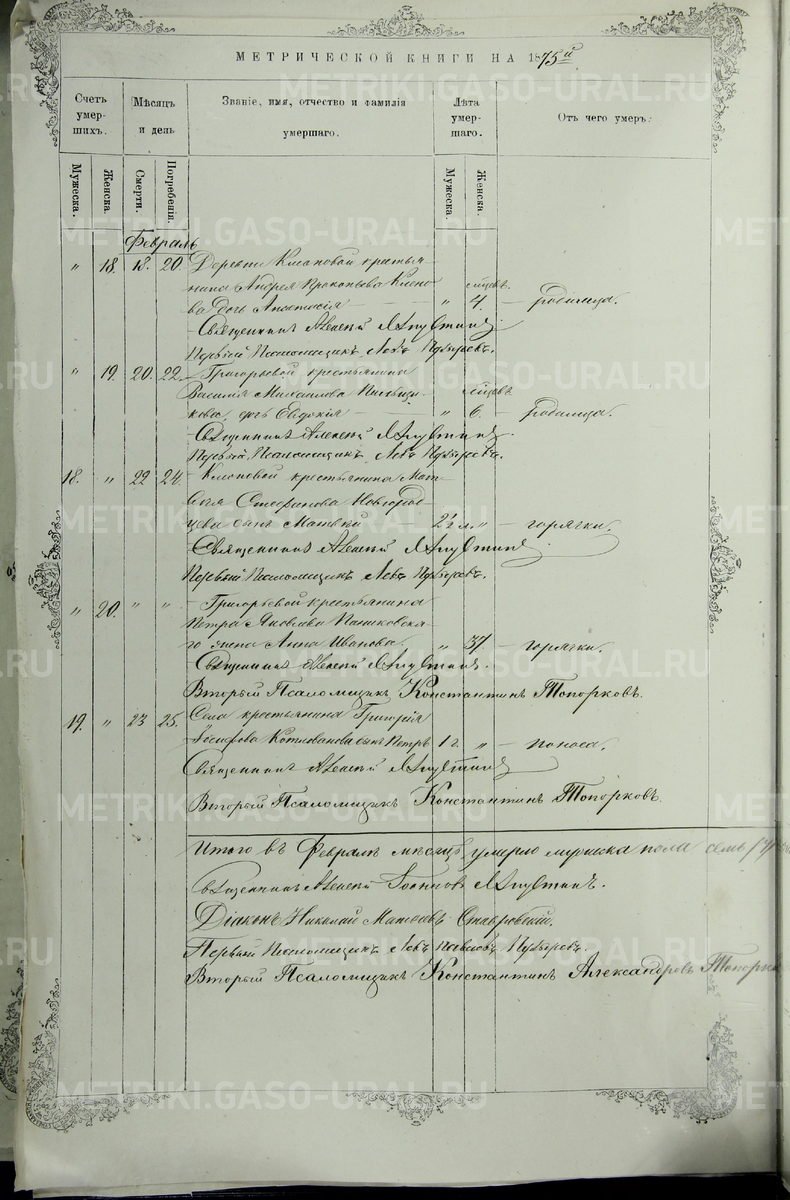 МЕТРИЧЕСКОЙ КНИГИ НА 1875й
Счетъ умерших.
Мѣсяцъ и день
Званіе, имя, отчество и фамилія умершаго.
Лѣта умершаго.
Отъ чего умеръ.
Мужеска.
Женска.
Смерти.
Погребенія.
Мужеска.
Женска.
Февраль
" 18. 18. 20. Деревни Клаповой крестья-
нина Андрея Прокопьева
ва дочь Анастасія — " 4. — родимца.
Священникъ Алексей
Первый Псаломщикъ Левъ Пузыревъ.
" 19. 20. 22. — Григорьевой крестьянина
Василія Михаилова
кова, дочь Евдокія — " 6 — родимца.
Священникъ Алексей
Первый Псаломщикъ Левъ Пузыревъ.
18. " 22 24. — Клаповой крестьянина Мат-
вея Стефанова Новгород-
цева сынъ Матвей — 2 г. " — горячки.
Священникъ Алексей
Первый Псаломщикъ Левъ Пузыревъ.
" 20. " " — Григорьевой крестьянина
Петра Яковлева
го жена Анна Иванова. " 37 — горячки.
Священникъ Алексей
Второй Псаломщикъ Константинъ Топорковъ.
19. " 23 25. Села крестьянина Григорія
Котлованова сынъ Петръ 1 г. " — поноса.
Священникъ Алексей
Второй Псаломщикъ Константинъ Топорковъ.
Итого въ Февралѣ мѣсяцѣ умерло мужеска пола семь (7)
Священникъ Алексей
Діаконъ Николай Матѳеевъ Ставровскій.
Первый Псаломщикъ Левъ Павловъ Пузыревъ.
Второй Псаломщикъ Константинъ Александровъ
METRIKI.GASO-URAL.RU